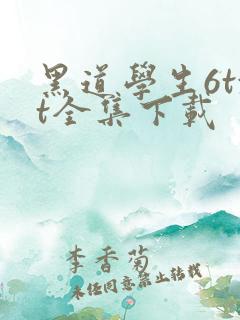 黑道學生6tx
t全集下載
李香菊
未经同意禁止转载